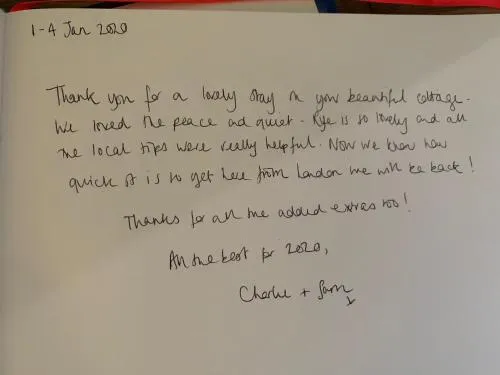 1-4 Jan 2020
Thank you for a lovely stay in your beautiful cottage.
We loved the peace and quiet. Rye is so lovely and all
the local tips were really helpful. Now we know how
quick it is to get here from London we will be back!
Thanks for all the added extras too!
All the best for 2020,
Charlie + Sam